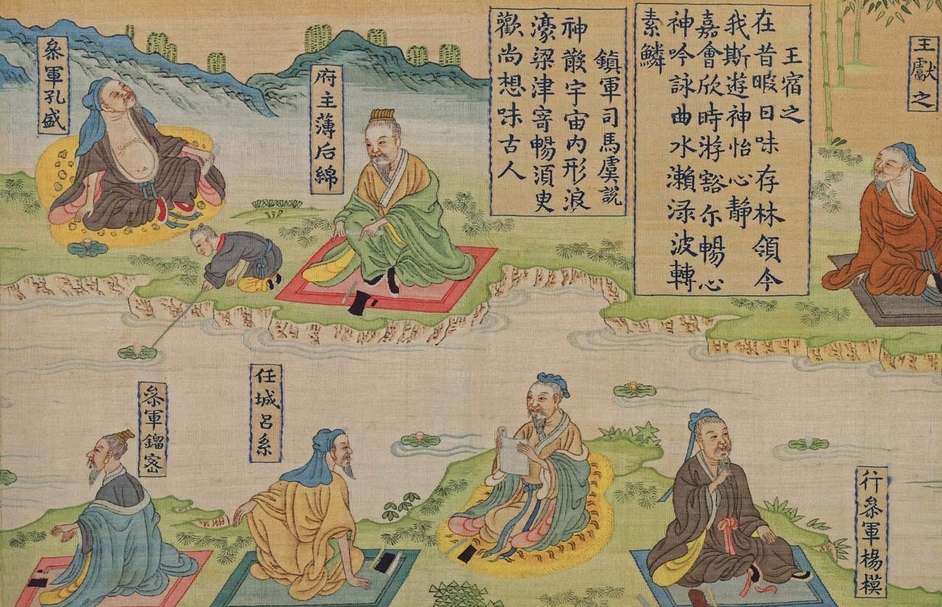 王獻之
王宿之
在昔暇日味存林領今
我斯遊神怡心靜
嘉會欣時游豁尓暢心
神吟詠曲水瀨渌波轉
素鱗
鎮軍司馬虞說
神散宇宙內形浪
濠梁津寄暢須臾
歡尚想味古人
府主薄后綿
叅軍孔盛
行叅軍楊模
任城呂系
叅軍鎦密